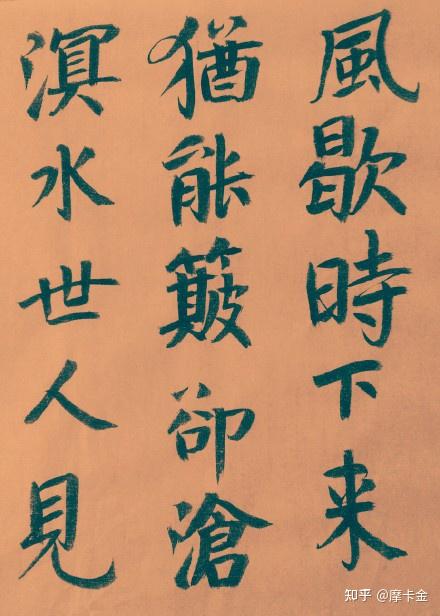 風歇時下来
猶能簸卻滄
溟水世人見
知乎 @摩卡金